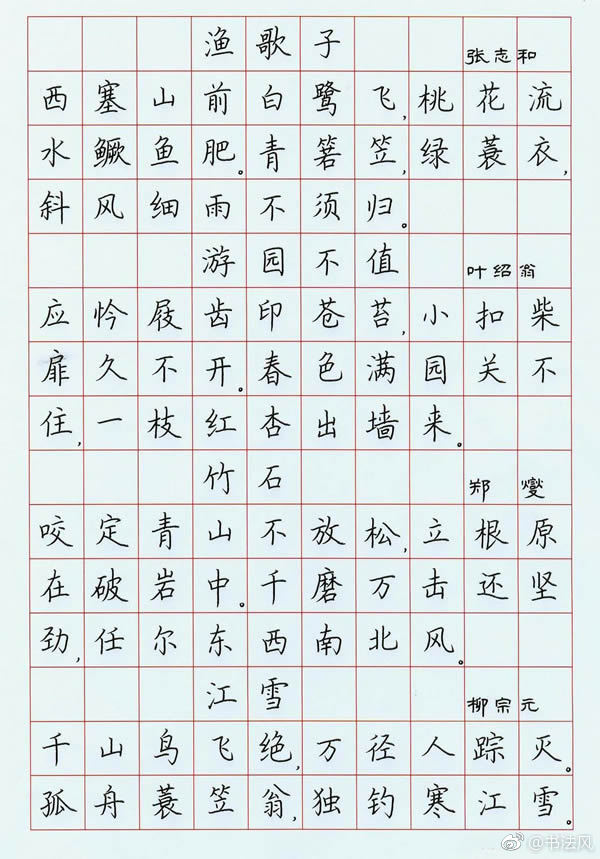 渔歌子 张志和
西塞山前白鹭飞,桃花流
水鳜鱼肥。青箬笠,绿蓑衣,
斜风细雨不须归。
游园不值 叶绍翁
应怜屐齿印苍苔,小扣柴
扉久不开。春色满园关不
住,一枝红杏出墙来。
竹石 郑燮
咬定青山不放松,立根原
在破岩中。千磨万击还坚
劲,任尔东西南北风。
江雪 柳宗元
千山鸟飞绝,万径人踪灭。
孤舟蓑笠翁,独钓寒江雪。
@书法风